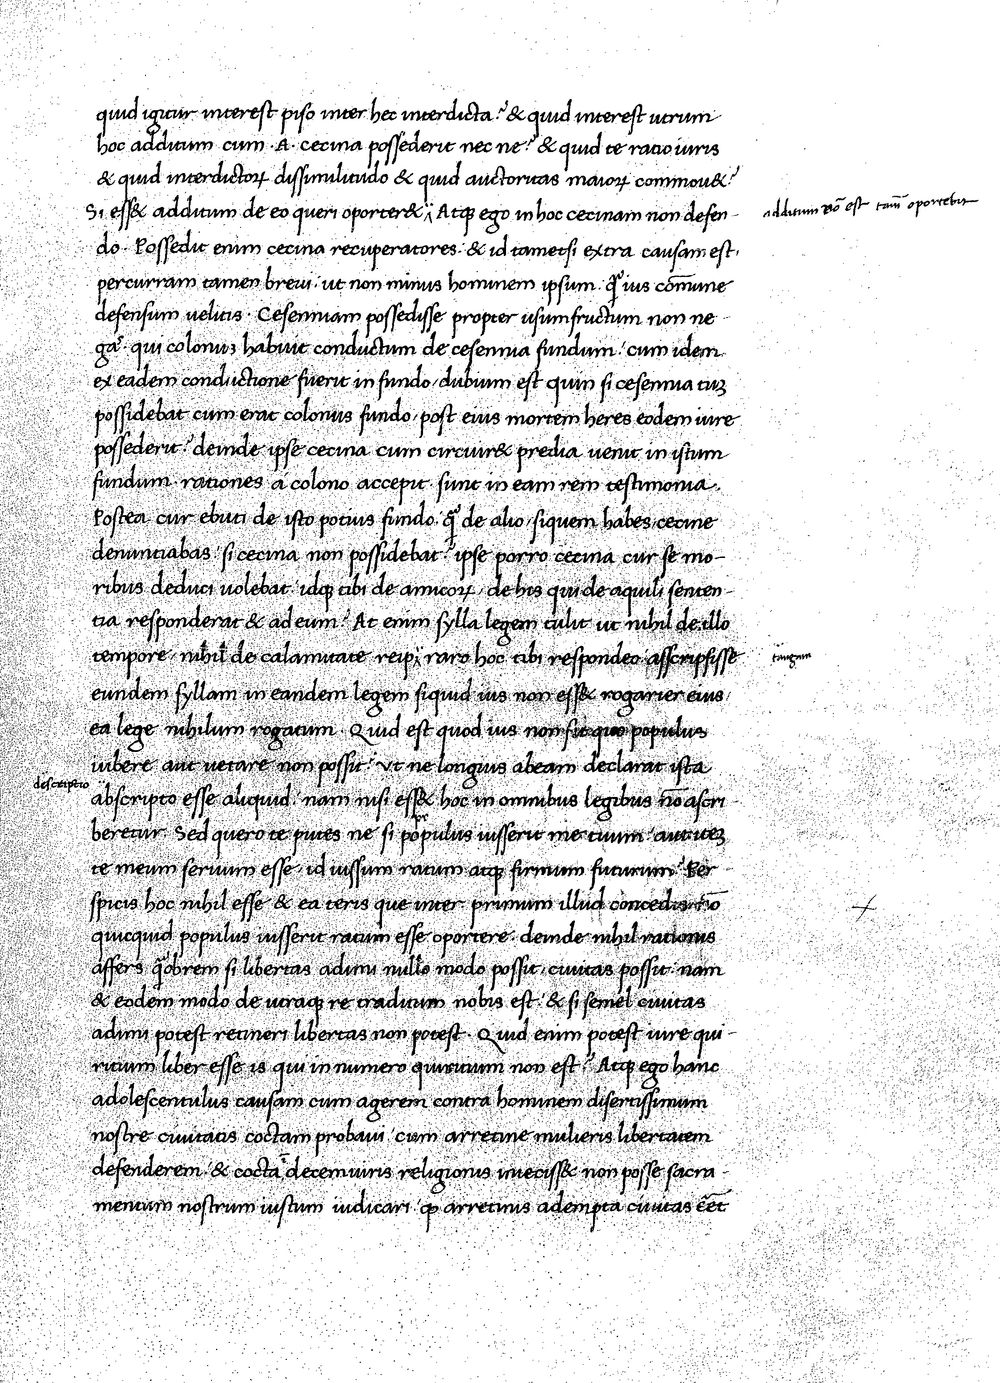 quid igitur interest piso inter hec interdicta? & quid interest utrum
hoc additum cum · A · cecina possederit nec ne? & quid te ratio iuris
& quid interdictoꝝ dissimilitudo & quid auctoritas maioꝝ commou&?
Si ess& additum de eo queri oporter& Atqꝫ ego in hoc cecinam non defen-
additum nō est tam̄ oportebit
do · Possedit enim cecina recuperatores · & id tametsi extra causam est,
percurram tamen brevi, ut non minus hominem ipsum, q̄ ius com̄une
defensum uelitis · Cesenniam possedisse propter usumfructum non ne-
gas · qui colonus habuit conductum de cesennia fundum, cum idem
ex eadem conductione fuerit in fundo, dubium est quin si cesennia tuꝫ
possidebat cum erat colonus fundo, post eius mortem heres eodem iure
possederit? deinde ipse cecina cum circuir& predia uenit in istum
fundum · rationes a colono accepit · sunt in eam rem testimonia.
Postea cur ebuti de isto potius fundo, q̄ de alio, siquem habes, cecine
denuntiabas, si cecina non possidebat? ipse porro cecina cur se mo-
ribus deduci uolebat, idqꝫ tibi de amicoꝝ, de his qui de aquili senten-
tia responderat & ad eum? At enim sylla legem tulit ut nihil de illo
tempore, nihil de calamitate reip̄, raro hoc tibi respondeo asscripsisse
tangam
eundem syllam in eandem legem siquid ius non ess& rogarier eius,
ea lege nihilum rogatum · Quid est quod ius non sit quo populus
iubere aut uetare non possit? ut ne longius abeam declarat ista
descriptio
abscripto esse aliquid, nam nisi ess& hoc in omnibus legibus nō ascri-
beretur · Sed quero te putes ne si populus iusserit me tuum, aut iteꝫ
te meum seruum esse, id iussum ratum atqꝫ firmum futurum? Per
spicis hoc nihil esse & ea teris que inter primum illud concedis nō
quicquid populus iusserit ratum esse oportere · deinde nihil rationis
affers q̄obrem si libertas adimi nullo modo possit, ciuitas possit, nam
& eodem modo de utraqꝫ re traditum nobis est, & si semel ciuitas
adimi potest retineri libertas non potest · Quid enim potest iure qui-
ritium liber esse is qui in numero quiritum non est? Atqꝫ ego hanc
adolescentulus causam cum agerem contra hominem disertissimum
nostre ciuitatis coctam probaui, cum arretine mulieris libertatem
defenderem, & cocta decemuiris religionis iniecisss& non posse sacra-
mentum nostrum iustum iudicari, ꝙ arretinis adempta ciuitas eēt